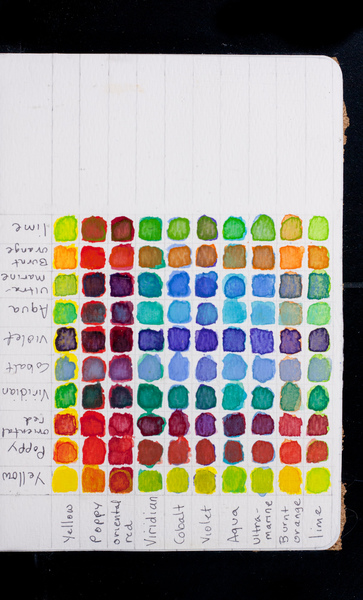 lime
Burnt
orange
ultra-
marine
Aqua
violet
Cobalt
Viridian
oriental
red
Poppy
Yellow
Yellow
Poppy
oriental
red
Viridian
Cobalt
Violet
Aqua
ultra-
marine
Burnt
orange
lime